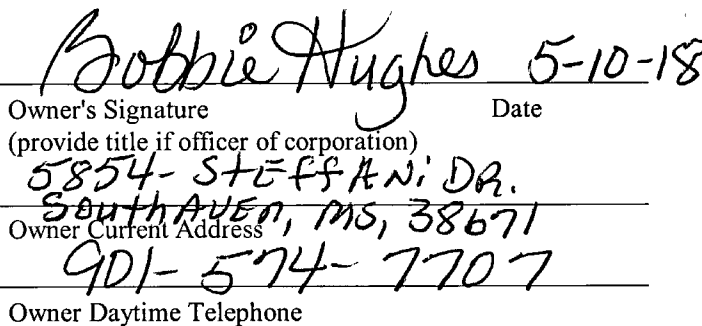 Bobbie Hughes 5-10-18
Owner's Signature Date
(provide title if officer of corporation)
5854- StEffANi DR.
SouthAVEn, MS, 38671
Owner Current Address
901-574-7707
Owner Daytime Telephone